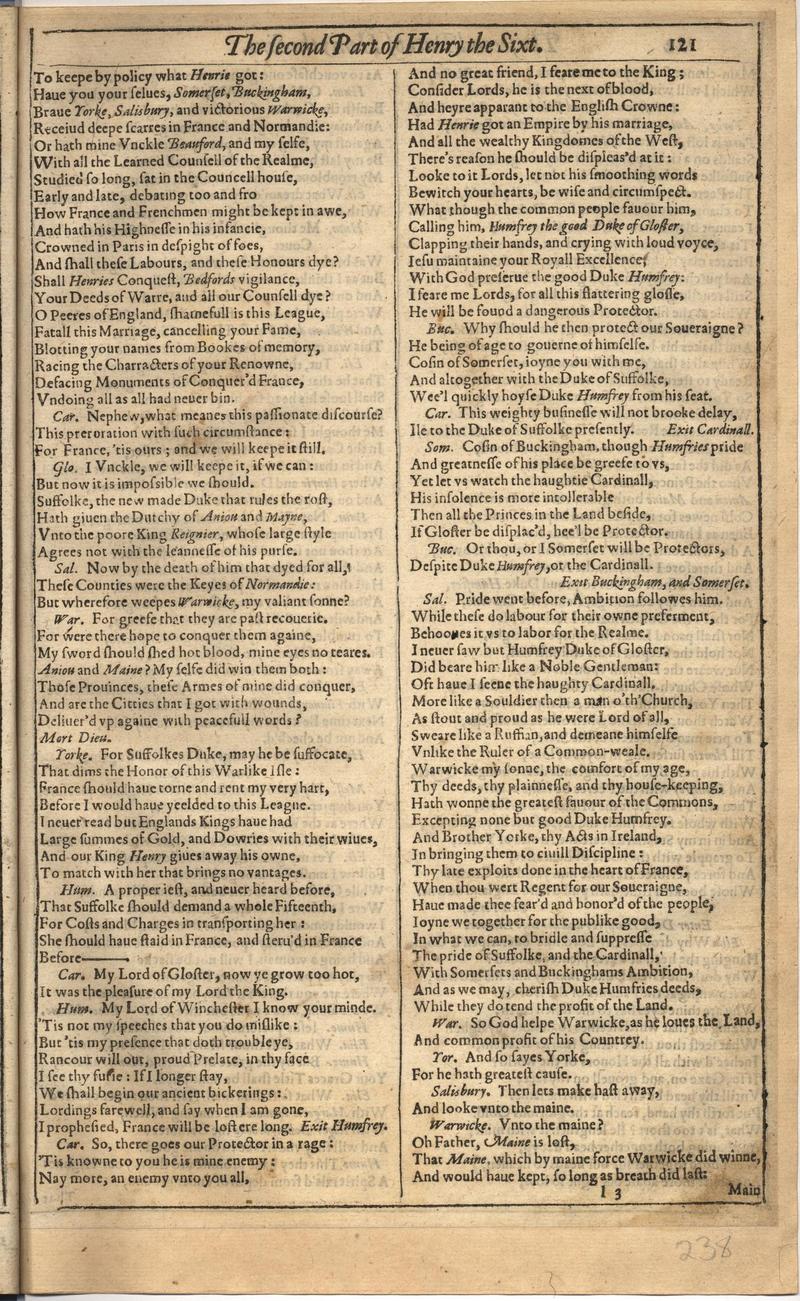 The ſecond Part of Henry the Sixt. 121
To keepe by policy what Henrie got:
Haue you your ſelues, Somerſet, Buckingham,
Braue Yorke, Salisbury, and victorious Warwicke,
Receiud deepe ſcarres in France and Normandie:
Or hath mine Vnckle Beauford, and my ſelfe,
With all the Learned Counſell of the Realme,
Studied ſo long, ſat in the Councell houſe,
Early and late, debating too and fro
How France and Frenchmen might be kept in awe,
And hath his Highneſſe in his infancie,
Crowned in Paris in deſpight of foes,
And ſhall theſe Labours, and theſe Honours dye?
Shall Henries Conqueſt, Bedfords vigilance,
Your Deeds of Warre, and all our Counſell dye?
O Peeres of England, ſhamefull is this League,
Fatall this Marriage, cancelling your Fame,
Blotting your names from Bookes of memory,
Racing the Charracters of your Renowne,
Defacing Monuments of Conquer'd France,
Vndoing all as all had neuer bin.
Car. Nephew, what meanes this paſſionate diſcourſe?
This preroration with ſuch circumſtance:
For France, 'tis ours; and we will keepe it ſtill.
Glo. I Vnckle, we will keepe it, if we can:
But now it is impoſsible we ſhould.
Suffolke, the new made Duke that rules the roſt,
Hath giuen the Dutchy of Aniou and Mayne,
Vnto the poore King Reignier, whoſe large ſtyle
Agrees not with the leanneſſe of his purſe.
Sal. Now by the death of him that dyed for all,
Theſe Counties were the Keyes of Normandie:
But wherefore weepes Warwicke, my valiant ſonne?
War. For greefe that they are paſt recouerie.
For were there hope to conquer them againe,
My ſword ſhould ſhed hot blood, mine eyes no teares.
Aniou and Maine? My ſelfe did win them both:
Thoſe Prouinces, theſe Armes of mine did conquer,
And are the Citties that I got with wounds,
Deliuer'd vp againe with peacefull words?
Mort Dieu.
Yorke. For Suffolkes Duke, may he be ſuffocate,
That dims the Honor of this Warlike Iſle:
France ſhould haue torne and rent my very hart,
Before I would haue yeelded to this League.
I neuer read but Englands Kings haue had
Large ſummes of Gold, and Dowries with their wiues,
And our King Henry giues away his owne,
To match with her that brings no vantages.
Hum. A proper ieſt, and neuer heard before,
That Suffolke ſhould demand a whole Fifteenth,
For Coſts and Charges in tranſporting her:
She ſhould haue ſtaid in France, and ſteru'd in France
Before———.
Car. My Lord of Gloſter, now ye grow too hot,
It was the pleaſure of my Lord the King.
Hum. My Lord of Wincheſter I know your minde.
'Tis not my ſpeeches that you do miſlike:
But 'tis my preſence that doth trouble ye,
Rancour will out, proud Prelate, in thy face
I ſee thy furie: If I longer ſtay,
We ſhall begin our ancient bickerings:
Lordings farewell, and ſay when I am gone,
I propheſied, France will be loſt ere long. Exit Humfrey.
Car. So, there goes our Protector in a rage:
'Tis knowne to you he is mine enemy:
Nay more, an enemy vnto you all,
And no great friend, I feare me to the King;
Conſider Lords, he is the next of blood,
And heyre apparant to the Engliſh Crowne:
Had Henrie got an Empire by his marriage,
And all the wealthy Kingdomes of the Weſt,
There's reaſon he ſhould be diſpleas'd at it:
Looke to it Lords, let not his ſmoothing words
Bewitch your hearts, be wiſe and circumſpect.
What though the common people fauour him,
Calling him, Humfrey the good Duke of Gloſter,
Clapping their hands, and crying with loud voyce,
Ieſu maintaine your Royall Excellence,
With God preſerue the good Duke Humfrey:
I feare me Lords, for all this flattering gloſſe,
He will be found a dangerous Protector.
Buc. Why ſhould he then protect our Soueraigne?
He being of age to gouerne of himſelfe.
Coſin of Somerſet, ioyne you with me,
And altogether with the Duke of Suffolke,
Wee'l quickly hoyſe Duke Humfrey from his ſeat.
Car. This weighty buſineſſe will not brooke delay,
Ile to the Duke of Suffolke preſently. Exit Cardinall.
Som. Coſin of Buckingham, though Humfries pride
And greatneſſe of his place be greefe to vs,
Yet let vs watch the haughtie Cardinall,
His inſolence is more intollerable
Then all the Princes in the Land beſide,
If Gloſter be diſplac'd, hee'l be Protector.
Buc. Or thou, or I Somerſet will be Protectors,
Deſpite Duke Humfrey, or the Cardinall.
Exit Buckingham, and Somerſet.
Sal. Pride went before, Ambition followes him.
While theſe do labour for their owne preferment,
Behooues it vs to labor for the Realme.
I neuer ſaw but Humfrey Duke of Gloſter,
Did beare him like a Noble Gentleman:
Oft haue I ſeene the haughty Cardinall,
More like a Souldier then a man o'th'Church,
As ſtout and proud as he were Lord of all,
Sweare like a Ruffian, and demeane himſelfe
Vnlike the Ruler of a Common-weale.
Warwicke my ſonne, the comfort of my age,
Thy deeds, thy plainneſſe, and thy houſe-keeping,
Hath wonne the greateſt fauour of the Commons,
Excepting none but good Duke Humfrey.
And Brother Yorke, thy Acts in Ireland,
In bringing them to ciuill Diſcipline:
Thy late exploits done in the heart of France,
When thou wert Regent for our Soueraigne,
Haue made thee fear'd and honor'd of the people,
Ioyne we together for the publike good,
In what we can, to bridle and ſuppreſſe
The pride of Suffolke, and the Cardinall,
With Somerſets and Buckinghams Ambition,
And as we may, cheriſh Duke Humfries deeds,
While they do tend the profit of the Land.
War. So God helpe Warwicke, as he loues the Land,
And common profit of his Countrey.
Yor. And ſo ſayes Yorke,
For he hath greateſt cauſe.
Salisbury. Then lets make haſt away,
And looke vnto the maine.
Warwicke. Vnto the maine?
Oh Father, Maine is loſt,
That Maine, which by maine force Warwicke did winne,
And would haue kept, ſo long as breath did laſt:
l 3 Main
238